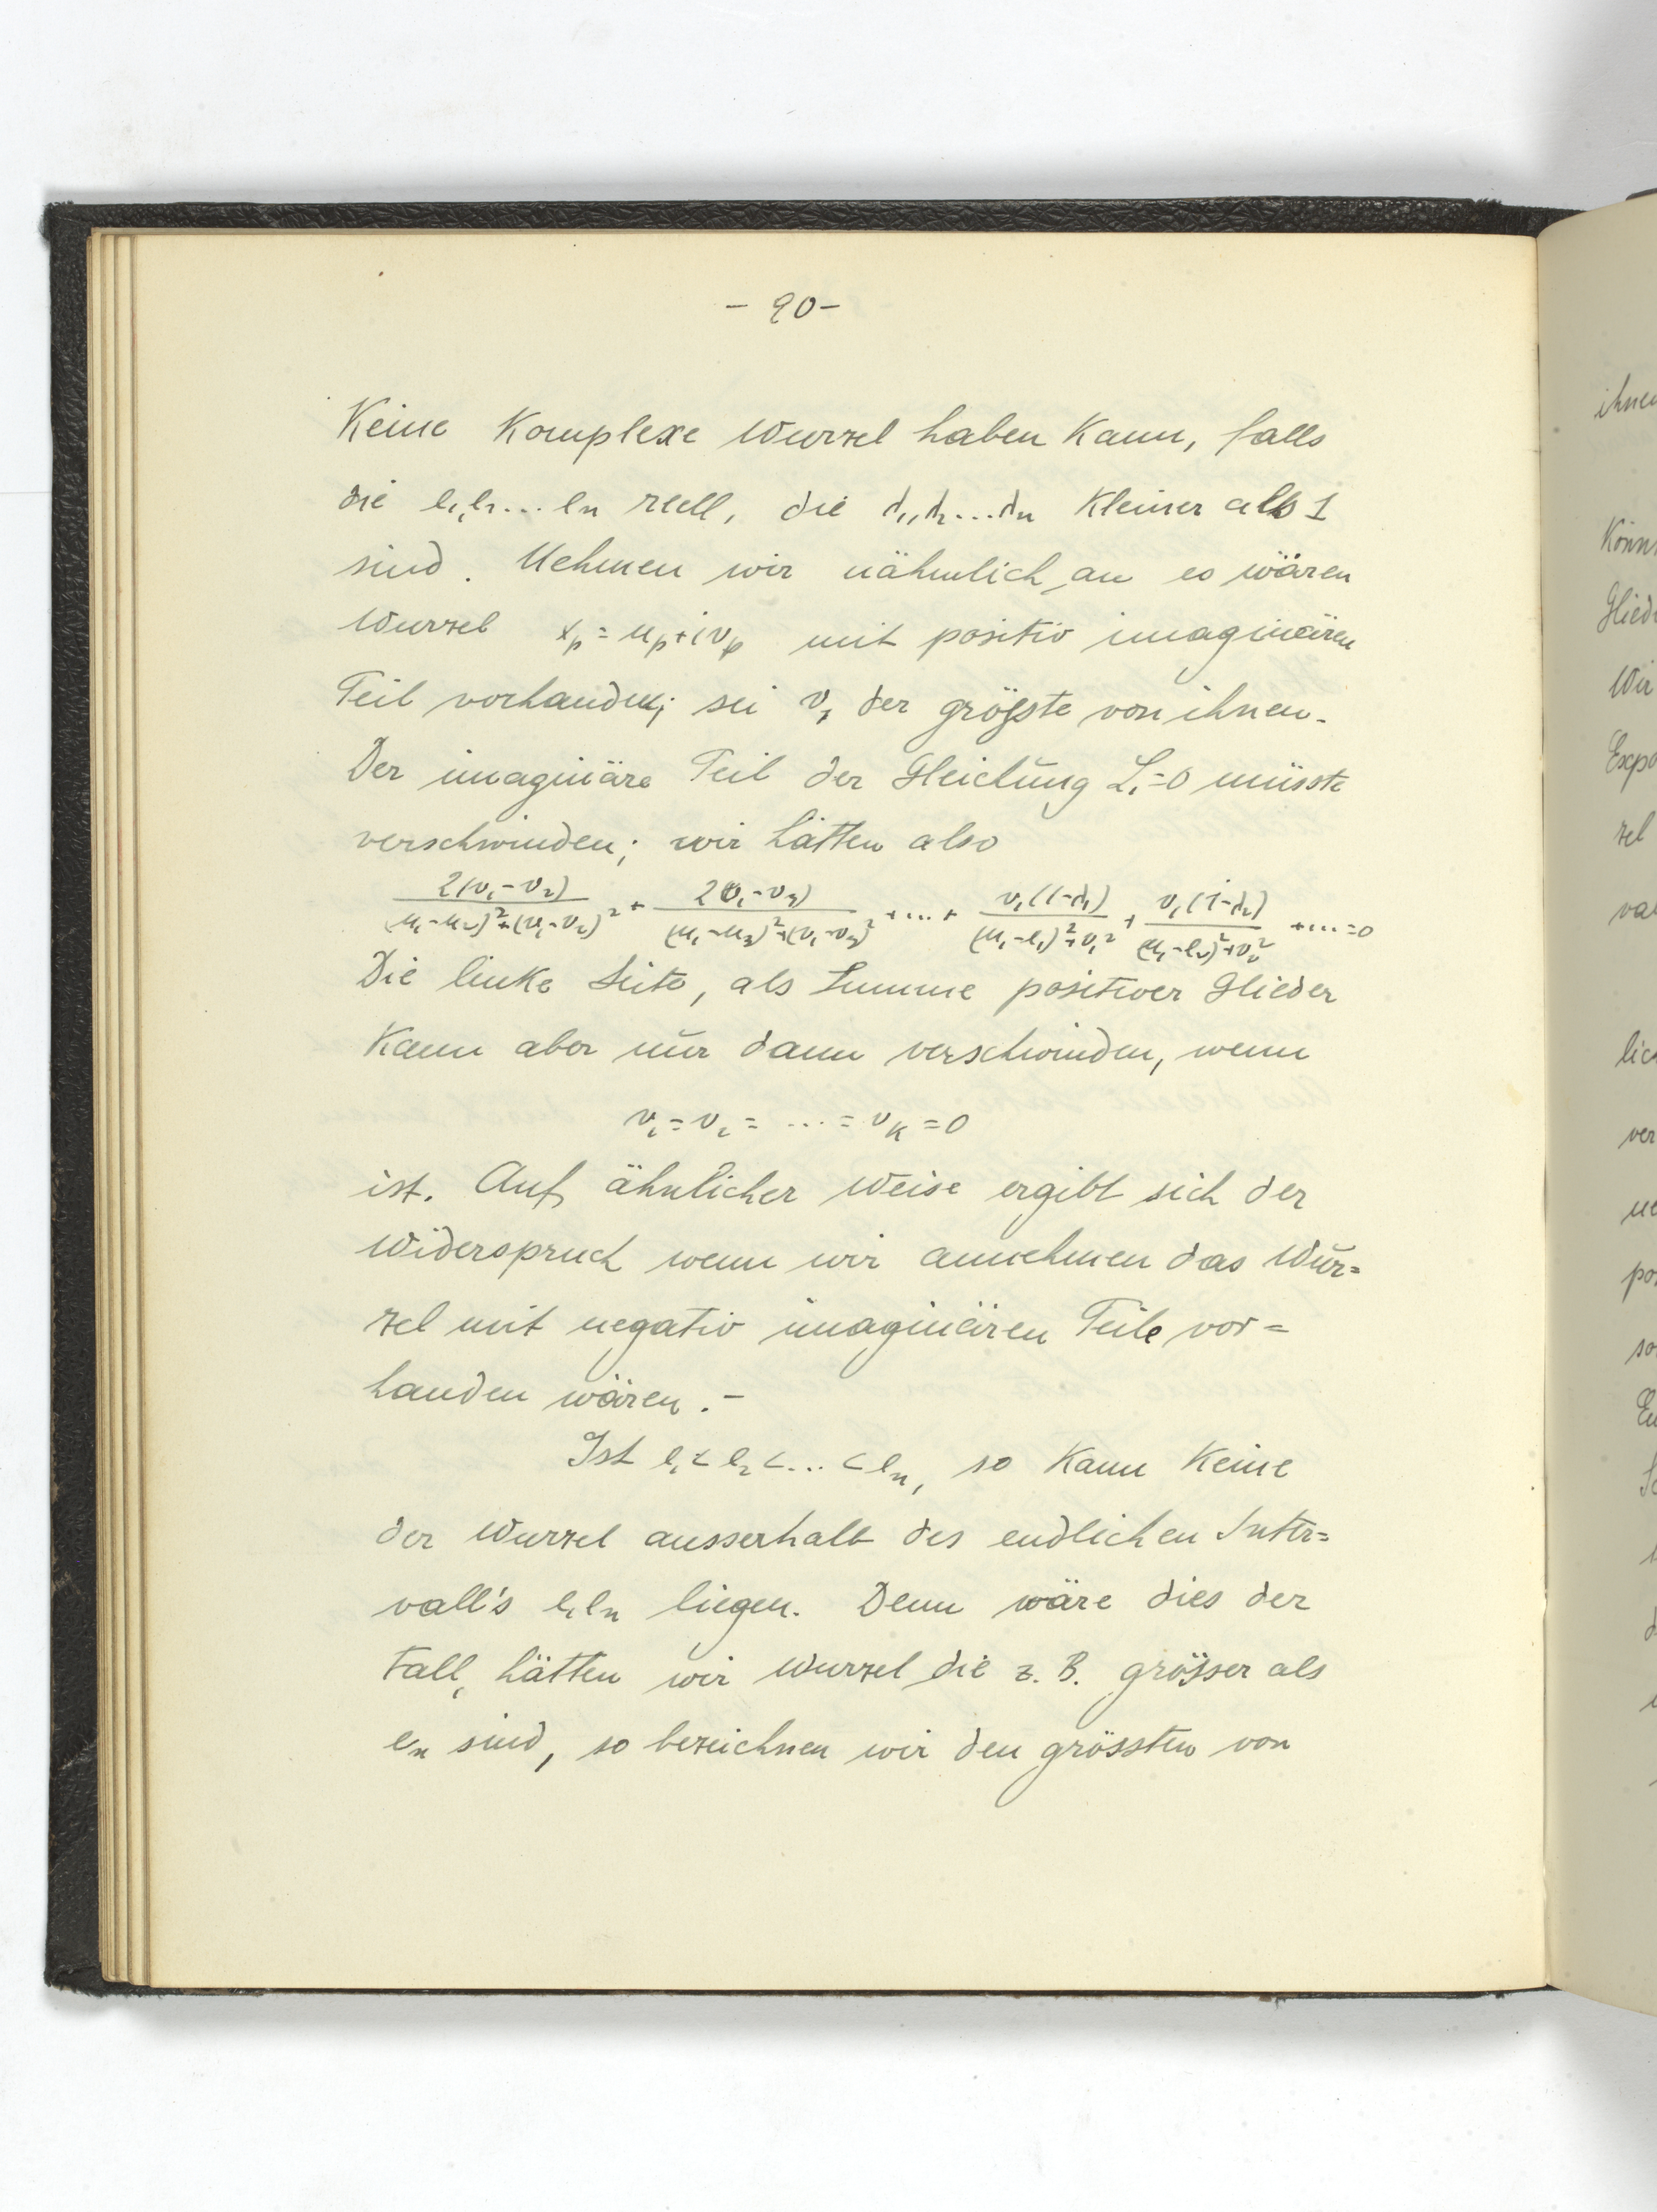 - 90 -
Keine Komplexe Wurzel haben Kann, falls
die l₁,l₂...lₙ reell, die d₁,d₂...dₙ Kleiner als 1
sind. Nehmen wir nähmlich an es wären
Wurzel xₚ=uₚ+ivₚ mit positiv imaginären
Teil vorhanden; sei v₁ der größte von ihnen.
Der imaginäre Teil der Gleichung L₁=0 müsste
verschwinden; wir hätten also
2(v₁-v₂)/((u₁-u₂)²+(v₁-v₂)²) + 2(v₁-v₃)/((u₁-u₃)²+(v₁-v₃)²) +...+ v₁(1-d₁)/((u₁-l₁)²+v₁²) + v₁(1-d₂)/((u₁-l₂)²+v₁²) +...=0
Die linke Seite, als Summe positiver Glieder
Kann aber nur dann verschwinden, wenn
v₁=v₂= ... =vₖ=0
ist. Auf ähnlicher Weise ergibt sich der
Widerspruch wenn wir annehmen das Wur=
zel mit negativ imaginären Teile vor=
handen wären.-
Ist l₁<l₂<...<lₙ, so Kann Keine
der Wurzel ausserhalb des endlichen Inter=
vall's l₁lₙ liegen. Denn wäre dies der
Fall, hätten wir Wurzel die z. B. grösser als
lₙ sind, so bezeichnen wir den grössten von
ihnen
Könn
Glied
Wir
Expo
zel
lic
ver
ne
po
so